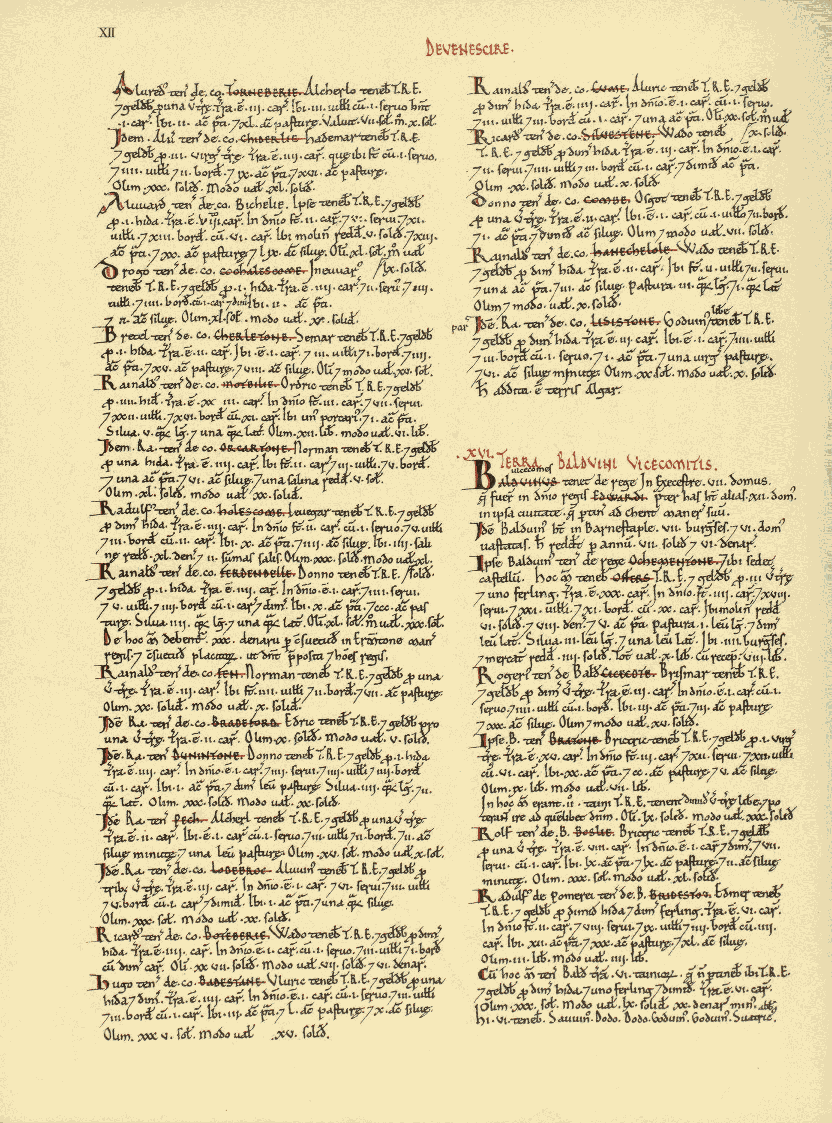 XII
DEVENESCIRE.
Alured ten de. co. TORNEBERIE. Alcherlo teneb T.R.E.
7 geldb p una v træ. Tra. ē. iii. car. Ibi. iii. uilli cū. i. seruo hnt
.i. car. Ibi. ii. ac pti. 7 xl. ac pasture. Valuit. vii. sol. m. x. sol.
Idem. Alu ten de. co. CHIDERLIE. hademar teneb T.R.E.
7 geldb p. iii. virg træ. Tra. ē. iii. car. que ibi st cū. i. seruo.
7 iiii. uilli 7 ii. bord. 7 ix. ac pti. 7 xvi. ac pasture.
Olim. xxx. solid. Modo ual. xl. solid.
Aluuard ten de. co. BICHELIE. Ipse teneb T.R.E. 7 geldb
p. i. hida. Tra. ē. viii. car. In dnio st. ii. car. 7 v. serui. 7 xi.
uilli. 7 xiii. bord. cū. vi. car. Ibi molin redd. v. solid. 7 xiii.
ac pti. 7 xx. ac pasture. 7 lx. ac silue. Oli. xl. sol. m ual
Drogo ten de. co. COCHALESCOME. Ineuuar / lx. solid.
teneb T.R.E. 7 geldb p. i. hida. Tra. ē. iiii. car. 7 ii. serui 7 iiii.
uilli. 7 iiii. bord. cū. i. car 7 dim. Ibi. ii. ac pti.
7 ii. ac silue. Olim. xl. sol. modo ual. xx. solid.
Bretel ten de. co. CHERLETONE. Semar teneb T.R.E. 7 geldb
p. i. hida. Tra. ē. ii. car. Ibi. ē. i. car. 7 iii. uilli 7 i. bord. 7 iiii.
ac pti. 7 xv. ac pasture. 7 viii. ac silue. Oli 7 modo ual. x. solid.
Rainald ten de. co. MORTBERIE. Ordric teneb T.R.E. 7 geldb
p. iii. hid. Tra. ē. xx iii. car. In dnio st. iii. car. 7 vii. serui
7 xxii. uilli. 7 xvi. bord. cū. xi. car. Ibi un porcari. 7 i. ac pti.
Silua. v. qz lg. 7 una qz lat. Olim. xii. lib. modo ual. vi. lib.
Idem. Ra. ten de. co. ORCARTONE. Norman teneb T.R.E. 7 geldb
p una hida. Tra. ē. xii. car. Ibi st. ii. car 7 iii. uilli. 7 v. bord.
7 una ac pti. 7 vi. ac silue. 7 una salina redd. v. sol.
Olim. xl. solid. modo ual. xx. solid.
Radulf ten de. co. HOLESCOME. Leuegar teneb T.R.E. 7 geldb
p dim hida. Tra. ē. iiii. car. Ibi st. ii. car. cū. i. seruo. 7 v. uilli
7 iii. bord cū. ii. car. Ibi. x. ac pti. 7 iiii. ac silue. Ibi. iiii. sali
ne redd. xl. den. 7 ii. sumas salis. Olim. xxx. solid. Modo ual. xl.
Rainald ten de. co. FERDENDELLE. Donno teneb T.R.E. / solid.
7 geldb p. i. hida. Tra. ē. iii. car. In dnio. ē. i. car. 7 iiii. serui.
7 v. uilli. 7 iiii. bord cū. i. car 7 dim. Ibi. x. ac pti. 7 ccc. ac pas
ture. Silua. iiii. qz lg. 7 una qz lat. Oli. xl. sol. m ual. xxx. sol.
De hoc m debent. xxx. denarii p csuetud in Ermtone man
regis. 7 csuetud placitoz. ut dnt pposta 7 hoes regis.
Rainald ten de. co. FEN. Norman teneb T.R.E. 7 geldb p una
v træ. Tra. ē. iii. car. Ibi st. iii. uilli 7 ii. bord. 7 vii. ac pasture.
Olim. xx. solid. Modo ual. x. solid.
Ide. Ra. ten de. co. BRADEFORD. Edric teneb T.R.E. 7 geldb pro
una v træ. Tra. ē. ii. car. Olim. x. solid. Modo ual. v. solid.
Ide. Ra. ten DUNINTONE. Donno teneb T.R.E. 7 geldb p. i. hida
Tra. ē. iiii. car. In dnio. ē. i. car. 7 iiii. serui. 7 iiii. uilli 7 iiii. bord
cū. i. car. Ibi. i. ac pti. 7 dim leu pasture. Silua. iiii. qz lg. 7 ii.
qz lat. Olim. xxx. solid. Modo ual. xx. solid.
Ide. Ra. ten PECH. Alcherl teneb T.R.E. 7 geldb p una v træ.
Tra. ē. ii. car. Ibi. ē. i. car cū. i. seruo. 7 iii. uilli 7 ii. bord. 7 ii. ac
silue minute. 7 una leu pasture. Olim. xv. sol. modo ual. x. sol.
Ide. Ra. ten de. co. LODEBROC. Aluuin teneb T.R.E. 7 geldb p
trib v træ. Tra. ē. iii. car. In dnio. ē. i. car. 7 vi. serui. 7 iii. uilli
7 v. bord cū. i. car 7 dimid. Ibi. i. ac pti. 7 una qz silue.
Olim. xxx. sol. Modo ual. xx. sol.
Ricard ten de. co. BOTEBERIE. Wado teneb T.R.E. 7 geldb p dim
hida. Tra. ē. iiii. car. In dnio. ē. i. car. cū. i. seruo. 7 iii. uilli 7 i. bord
cū dim car. Oli. xx vii. solid. modo ual. vii. solid. 7 vi. denar.
Hugo ten de. co. BADESTANE. Vluric teneb T.R.E. 7 geldb p una
hida 7 dim. Tra. ē. iiii. car. In dnio. ē. i. car. cū. i. seruo. 7 iii. uilli
7 iii. bord cū. i. car. Ibi. iii. ac pti. 7 l. ac pasture. 7 x. ac silue.
Olim. xxx v. sol. modo ual .xv. solid.
Rainald ten de. co. COME. Aluric teneb T.R.E. 7 geldb
p dim hida. Tra. ē. iiii. car. In dnio. ē. i. car. cū. i. seruo.
7 iii. uilli 7 ii. bord cū. i. car. 7 una ac pti. Oli. xx. sol. m ual
Ricard ten de. co. SILVESTENE. Wado teneb / x. solid.
T.R.E. 7 geldb p dim hida. Tra. ē. iii. car. In dnio. ē. i. car.
7 ii. serui. 7 iiii. uilli 7 iii. bord. cū. i. car. 7 dimid ac pti.
Olim. xx. solid. Modo ual. x. solid.
Donno ten de. co. COMBE. Osgot teneb T.R.E. 7 geldb
p una v træ. Tra. ē. ii. car. Ibi. ē. i. car. cū. i. uillo 7 ii. bord.
7 i. ac pti. 7 dimid ac silue. Olim 7 modo ual. vii. solid.
Rainald ten de. co. HANECHELOLE. Wado teneb T.R.E.
7 geldb p dim hida. Tra. ē. ii. car. Ibi st. ii. uilli 7 ii. serui.
7 una ac pti. 7 iii. ac silue. Pastura. iii. qz lg. 7 i. qz lat
Olim 7 modo. ual. x. solid.
par Ide. Ra. ten de. co. LIDISTONE. Goduin libe teneb T.R.E.
7 geldb p una v træ. Tra. ē. iiii. car. Ibi. ē. i. car. 7 iii. uilli
7 iii. bord cū. i. seruo. 7 i. ac pti. 7 una virg pasture.
7 vi. ac silue minute. Olim. xx. sol. Modo ual. x. solid.
H addita ē terris Algar.
.XVI. TERRA BALDVINI VICECOMITIS.
BALDVINVS vicecomes tenet de rege In Execestre. vii. domus.
q fuer in dnio regis EDWARDI. Pter has ht alias. xii. dom
in ipsa ciuitate. q ptin ad Chent maner suu.
Ide Balduin ht in Barnestaple. vii. burgses. 7 vi. dom
uastatas. h reddt p annu. vii. solid 7 vi. denar.
Ipse Balduin ten de rege OCHEMENTONE. 7 ibi sedet
castellu. Hoc m teneb OFFERS T.R.E. 7 geldb p. iii. v træ
7 uno ferling. Tra. ē. xxx. car. In dnio st. iiii. car. 7 xviii.
serui. 7 xxi. uilli. 7 xi. bord. cū. xx. car. Ibi molin redd
vi. solid 7 viii. den. 7 v. ac pti. Pastura. i. leu lg. 7 dim
leu lat. Silua. iii. leu lg. 7 una leu lat. Ibi. iiii. burgses.
7 mercat redd. iiii. solid. Tot ual. x. lib. cū recep. viii. lib.
Rogeri ten de Bald CICECOTE. Brismar teneb T.R.E.
7 geldb p dim v træ. Tra. ē. iiii. car. In dnio. ē. i. car. cū. i.
seruo. 7 iiii. uilli 7 iii. bord cū. i. car. 7 iii. ac pasture
7 xxx. ac silue. Olim 7 modo ual. xv. solid.
Ipse. B. ten BRATONE. Brictric teneb T.R.E. 7 geldb p. i. virg
træ. Tra. ē. xv. car. In dnio st. iii. car. 7 xii. serui. 7 xxii. uilli
cū. vi. car. Ibi. xx. ac pti. 7 cc. ac pasture. 7 v. ac silue.
Olim. ix. lib. Modo ual. vii. lib.
In hoc m erant. ii. taini T.R.E. tenent dimid v træ libe. 7 po
teran ire ad quelibet dnm. Oli. lx. solid. modo ual. xxx. solid
Rolf ten de. B. BOSLIE. Brictric teneb T.R.E. 7 geldb
p una v træ. Tra. ē. viii. car. In dnio. ē. i. car 7 dim. 7 vii.
serui. cū. i. car. Ibi. lx. ac pti. 7 lx. ac pasture. 7 ii. ac silue
minute. Olim. xxx. sol. modo ual. xl. solid.
Radulf de Pomerei ten de. B. BRIDESTOU. Edmer teneb
T.R.E. 7 geldb p dimid hida 7 dim ferling. Tra. ē. vi. car.
In dnio st. ii. car. 7 viii. serui. 7 ix. uilli 7 iiii. bord cū. iii.
car. Ibi. xii. ac pti. 7 xxx. ac pasture. 7 xl. ac silue.
Olim. iii. lib. Modo ual. iiii. lib.
Cū hoc m ten Bald tra. vi. tainoz. q n ptineb ibi T.R.E.
7 geldb p dim hida. 7 uno ferling 7 dimid. Tra. ē. vi. car.
Olim. xxx. sol. Modo ual. lx. solid. xx. denar min.
Hi. vi. teneb. Sauuin. Dodo. Dodo. Goduin. Goduin. Suetric.